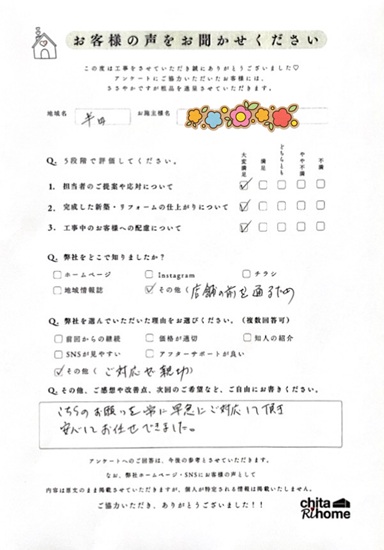 お客様の声をお聞かせください
この度は工事をさせていただき誠にありがとうございました♡
アンケートにご協力いただいたお客様には、
ささやかですが粗品を進呈させていただきます。
地域名 半田 お施主様名
Q. 5段階で評価してください。
大変満足 満足 どちらとも やや不満 不満
1. 担当者のご提案や応対について
2. 完成した新築・リフォームの仕上がりについて
3. 工事中のお客様への配慮について
Q. 弊社をどこで知りましたか?
ホームページ Instagram チラシ
地域情報誌 その他(店舗の前を通るため
Q. 弊社を選んでいただいた理由をお選びください。(複数回答可)
前回からの継続 価格が適切 知人の紹介
SNSが見やすい アフターサポートが良い
その他(ご対応や親切)
Q. その他、ご感想や改善点、次回のご希望など、ご自由にお書きください。
こちらのお願いを常に早急にご対応して頂き
安心してお任せできました。
アンケートへのご回答は、今後の参考とさせていただきます。
なお、弊社ホームページ・SNSにお客様の声として
内容は原文のまま掲載させていただきますが、個人が特定される情報は掲載いたしません。
ご協力いただき、ありがとうございました!!
chita
REhome